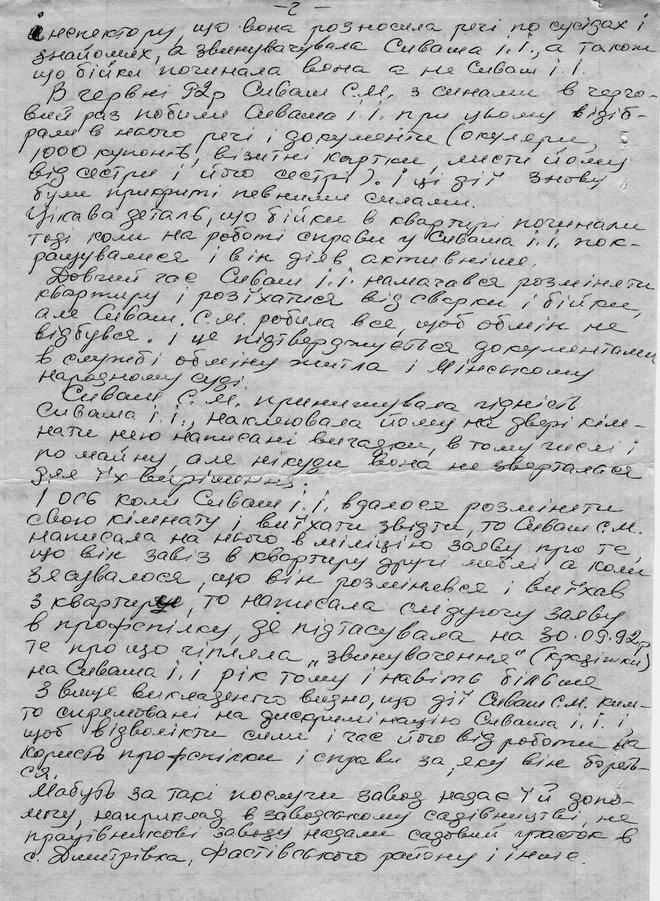 - 2 -
інспектору, що вона розносила речі по сусідах і
знайомих, а звинувачувала Сиваша І.І., а також
що бійки починала вона а не Сиваш І.І.
В червні 92р Сиваш С.М. з синами в черго-
вий раз побили Сиваша І.І. при цьому відіб-
рали в нього речі і документи (окуляри,
1000 купонів, візитні картки, листи йому
від сестри і його сестрі). І ці дії знову
були прикриті певними силами.
Цікава деталь, що бійки в квартирі починали
тоді коли на роботі справи у Сиваша І.І. пок-
ращувалися і він діяв активніше.
Довгий час Сиваш І.І. намагався розміняти
квартиру і розїхатися від сварки і бійки,
але Сиваш С.М. робила все, щоб обмін не
відбувся. І це підтверджується документами
в службі обміну житла і Мінському
народному суді.
Сиваш С.М. принижувала гідність
Сиваша І.І., наклеювала йому на двері кім-
нати нею написані вигадки, в тому числі і
по майну, але нікуди вона не зверталася
для їх вирішення.
І ось коли Сиваш І.І. вдалося розміняти
свою кімнату і виїхати звідти, то Сиваш С.М.
написала на нього в міліцію заяву про те,
що він завіз в квартиру другі меблі а коли
зясувалося, що він розмінявся і виїхав
з квартири, то написала си другу заяву
в профспілку, де підтасувала на 30.09.92р
те про що чіпляла „звинувачення" (крадіжки)
на Сиваша І.І рік тому і навіть більше
З вище викладенго видно, що дії Сиваш С.М. ким-
то спрямовані на дискримінацію Сиваша І.І. і,
щоб відволікти сили і час його від роботи на
користь профспілки і справи за яку він бореть-
ся.
Мабуть за такі послуги завод надає їй допо-
могу, наприклад в заводському садівництві, не
працівникові заводу надали садовий участок в
с. Дмитрівка, Фастівського району і інше.